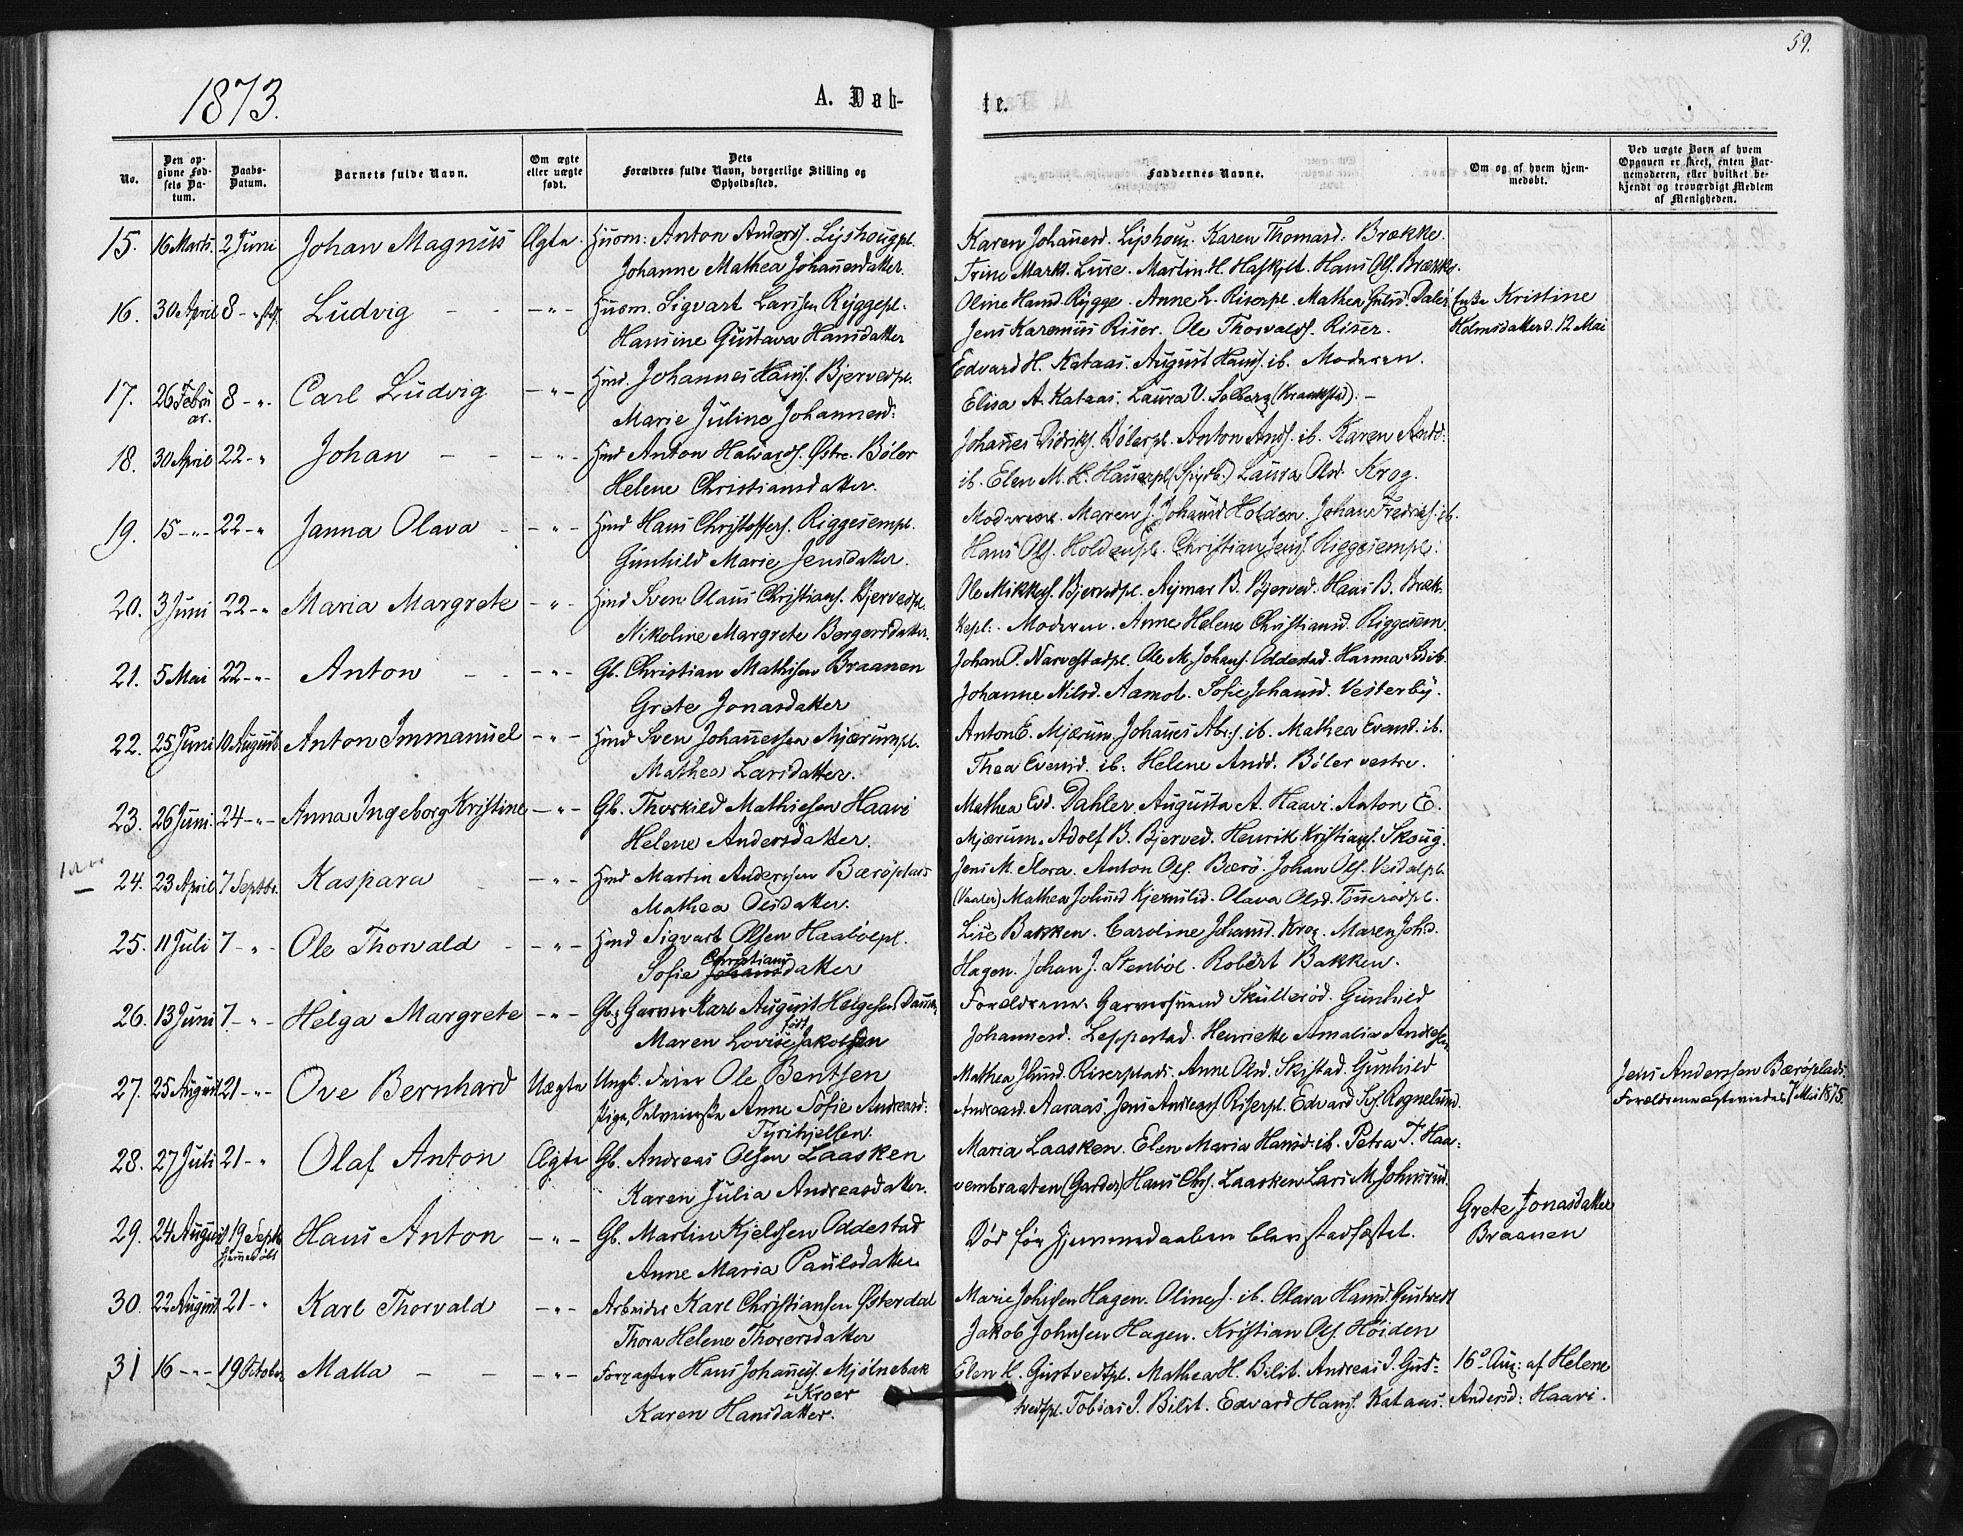 59.
1873.
A. Døb-
te.
No.
Den op-
givne Fød-
sels Da-
tum.
Daabs-
Datum.
Barnets fulde Navn.
Om ægte
eller uægte
født.
Dets
Forældres fulde Navn, borgerlige Stilling og
Opholdssted.
Faddernes Navne.
Om og af hvem hjem-
medøbt.
Ved uægte Børn af hvem
Opgaven er skeet, enten Bar-
nemoderen, eller hvilket be-
kjendt og troværdigt Medlem
af Menigheden.
15. 16 Marts. 2 Juni Johan Magnus Ægte. Husm: Anton Anders. Lyshougpl.
Johanne Mathea Johannesdatter.
Karen Johannesd. Lyshoug. Karen Thomasd. Brække.
Trine Mark. Lure. Martin H. Haskjel. Hans Ols. Brække.
16. 30 April 8 - Ludvig - - -"- Husm. Sigvart Larssen Ryggepl.
Hansine Gustava Hansdatter
Oline Hansd. Rygge. Anne L. Riserpl. Mathea Dales
Jens Karenius Riser. Ole Thorvalds. Riser.
Enke Kristine
Holmsdatter d. 12 Mai
17. 26 Febru
ar. 8 -". Carl Ludvig -"- Hmd. Johannes Hans. Bjervedpl.
Marie Juline Johannesd:
Edvard H. Kataas. August Hans. ib. Moderen.
Elisa A. Kataas. Laura V. Solberg (Kraakstad). -
18. 30 April 22 -" Johan - - -"- Hmd Anton Halvards. Østre Bøler
Helene Christiansdatter.
Johannes Didriks. Bølerpl. Anton Ands. ib. Karen Andd:
ib. Elen M. H. Hauerpl (Spydb.) Laura Olsd. Krog.
19. 15 -"- 22 -" Janna Olava - -"- Hmd Hans Christoffers. Riggesempl.
Gunhild Marie Jensdatter.
Moderen. Maren J. Johansd Holden. Johan Fredriks. ib.
Hans Ols. Holdenpl. Christian Jens. Riggesempl.
20. 3 Juni 22 -" Maria Margrete -"- Hmd Sven Olaus Christians. Bjervedpl.
Nikoline Margrete Borgersdatter.
Ole Mikkels. Bjervedpl. Aymar B. Bjerved. Hans B. Bræk-
kepl. Moderen. Anne Helene Christiansd. Riggesem.
21. 5 Mai 22 -"- Anton - - -"- Gb. Christian Mathisen Braanen
Grete Jonasdatter
Johan P. Narvestadpl. Ole M. Johans. Oddestad. Hanna ib.
Johanne Nilsd. Aamot. Sofie Johansd. Vesterby.
22. 25 Juni 10 August Anton Immanuel -"- Hmd Sven Johannessen Mjærumpl.
Mathea Larsdatter.
Anton E. Mjærum. Johannes Abr. ib. Mathea Evensd. ib.
Thea Evensd. ib. Helene Andd. Bøler vestre.
23. 26 Juni. 24 -"- Anna Ingeborg Kristine -"- Gb. Thorkild Mathiesen Haavi
Helene Andersdatter.
Mathea Ed. Dahler. Augusta A. Haavi. Anton E.
Mjærum. Adolf B. Bjerved. Henrik Kristians. Skoug.
24. 23 April 7 Septbr. Kaspara - -"- Hmd Martin Anderssen Bærøplads
Mathea Olsdatter.
Jens M. Flora. Anton Ols. Bærø. Johan Ols. Veidalpl.
(Vaaler) Mathea Johnsd Kjernslid. Olava Olsd. Tønnerødpl.
25. 11 Juli 7 -"- Ole Thorvald - -"- Hmd Sigvart Olsen Haabølpl.
Sofie Christiansdatter
Lise Bakken. Caroline Johansd. Krog. Maren Joh.d.
Hagen. Johan J. Stenbøl. Robert Bakken.
26. 13 Juni 7 -"- Helga Margrete -"- Gb. & Garver Karl August Helgesen
Maren Lovise født Jakobsen
Forældrene. Garversvend Skullerød. Gunhild
Johannesd. Leppestad. Henriette Amalia Andersen
27. 25 August 21 -"- Ove Bernhard Uægte Ungk. Ole Bentsen
Pige, Anne Sofie Andreasd:
Tyrihjellen.
Mathea Riserplads. Anne Olsd. Skistad. Gunhild
Andreasd. Aaraas. Jens Andreas. Riserpl. Edvard Rognelund.
Jens Anderssen Bærøplads.
Forældrene ægteviedes 7 Mai 1875.
28. 27 Juli 21 -" Olaf Anton Ægte Gb. Andreas Olsen Laasken
Karen Julia Andreasdatter.
Maria Laasken. Elen Maria Hansd. ib. Petra T. Haa-
venbraaten (Garder) Hans Chrs. Laasken. Lars M. Johnsrud.
29. 24 August 19 Septb.
hjemmedøbt Hans Anton -"- Gb. Martin Kjelssen Oddestad
Anne Maria Paulsdatter
Død før Hjemmedaaben blev stadfæstet.
Grete Jonasdatter
Braanen
30. 22 August. 21 -" Karl Thorvald -"- Arbeider Karl Christiansen Østerdal
Thora Helene Thorersdatter
Marie Johnsen Hagen. Oline J. ib. Olava Hansd. Gustvedt
Jakob Johnsen Hagen. Kristian Ols. Høiden
31 16 -"- 19 October Malla - - -"- Forpagter Hans Johannes. Mjølnebæk
i Kroer
Karen Hansdatter.
Elen K. Gustvedtpl. Mathea H. Bilit. Andreas J. Gust-
vedtpl. Tobias J. Bilit. Edvard Hans. Kataas.
16de Aug: af Helene
Andersd: Haavi.